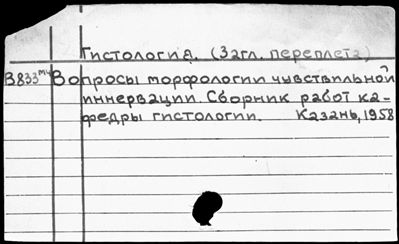 Гистология. (Загл. переплета)
В833мч Вопросы морфологии чувствильной
иннервации. Сборник работ ка-
федры гистологии. Казань, 1958